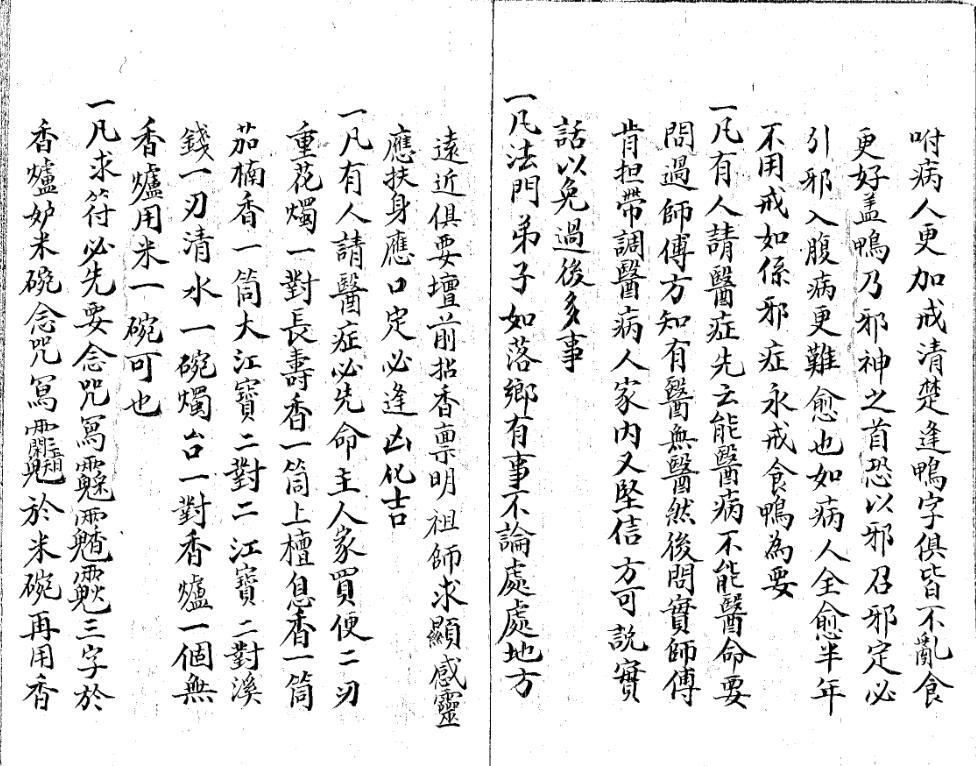 咐病人更加戒清楚逢鴨字俱皆不亂食
更好盖鴨乃邪神之首恐以邪召邪定必
引邪入腹病更難愈也如病人全愈半年
不用戒如係邪症永戒食鴨為要
一凡有人請醫症先云能醫病不能醫命要
問過師傅方知有醫無醫然後問實師傅
肯担帶調醫病人家內又堅信方可說實
話以免過後多事
一凡法門弟子如落鄉有事不論處處地方
遠近俱要壇前拈香禀明祖師求顯感靈
應扶身應口定必逢凶化吉
一凡有人請醫症必先命主人家買便二刃
重花燭一對長壽香一筒上檀息香一筒
茄楠香一筒大江寶二對二江寶二對溪
錢一刃清水一碗燭台一對香爐一個無
香爐用米一碗可也
一凡求符必先要念咒寫三字於
香爐妒米碗念咒寫於米碗再用香